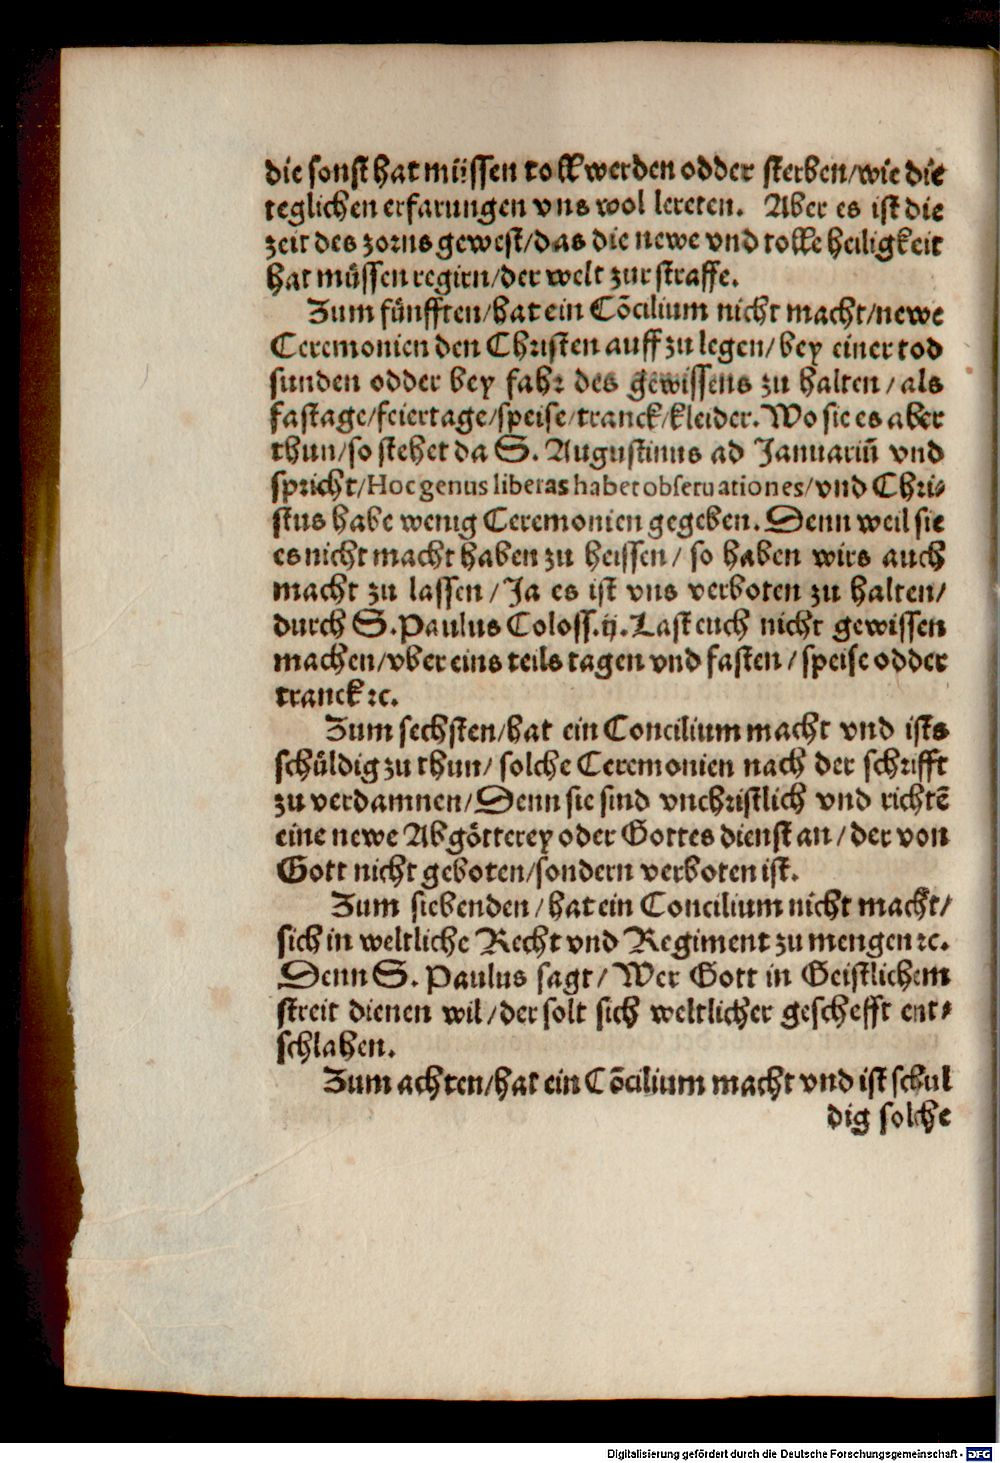 die sonst hat müssen toll werden odder sterben/wie die
teglichen erfarungen vns wol lereten. Aber es ist die
zeit des zorns gewest/das die newe vnd tolle heiligkeit
hat müssen regirn/der welt zur straffe.
Zum fünfften/hat ein Cōcilium nicht macht/newe
Ceremonien den Christen auff zu legen/bey einer tod
sunden odder bey fahr des gewissens zu halten/als
fastage/feiertage/speise/tranck/kleider. Wo sie es aber
thun/so stehet da S. Augustinus ad Januariū vnd
spricht/Hoc genus liberas habet obseruationes/vnd Chri⸗
stus habe wenig Ceremonien gegeben. Denn weil sie
es nicht macht haben zu heissen/ so haben wirs auch
macht zu lassen/Ja es ist vns verboten zu halten/
durch S. Paulus Coloss.ij. Last euch nicht gewissen
machen/vber eins teils tagen vnd fasten/speise odder
tranck ꝛc.
Zum sechsten/hat ein Concilium macht vnd ists
schüldig zu thun/ solche Ceremonien nach der schrifft
zu verdamnen/Denn sie sind vnchristlich vnd richtē
eine newe Abgötterey oder Gottes dienst an/der von
Gott nicht geboten/sondern verboten ist.
Zum siebenden/hat ein Concilium nicht macht/
sich in weltliche Recht vnd Regiment zu mengen ꝛc.
Denn S. Paulus sagt/ Wer Gott in Geistlichem
streit dienen wil/der solt sich weltlicher geschefft ent⸗
schlahen.
Zum achten/hat ein Cōcilium macht vnd ist schul
dig solche
Digitalisierung gefördert durch die Deutsche Forschungsgemeinschaft - DFG